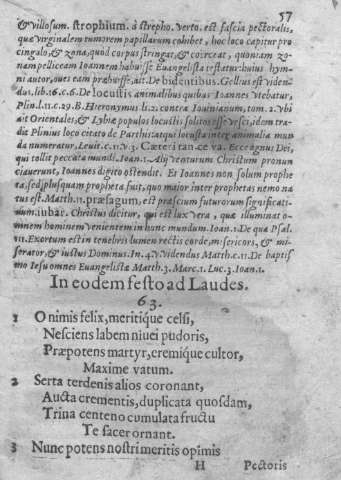 57
& villosum. strophium. à strepho. verto. est fascia pectoralis,
quæ virginalem tumorem papillarum cohibet, hoc loco capitur pro
cingulo, & zona, quòd corpus stringat, & coërceat, quoniam zo-
nam pelliceam Ioannem habuisse Euangelista testatur: huius hym-
ni autor, oues eam præbuisse, ait. De bidentibus. Gellius est viden-
dus, lib. 16. c. 6. De locustis animalibus quibus Ioannes vtebatur,
Plin. l. 11. c. 29. B. Hieronymus li. 2. contra Iouinianum, tom. 2. vbi
ait Orientales, & Lybiæ populos locustis solitos esse vesci, idem tra-
dit Plinius loco citato de Parthis: atqui locusta inter animalia mun
da numeratur, Leuit. c. 11. v. 3. Cæteri tan. ce. va. Ecce agnus Dei,
qui tollit peccata mundi. Ioan. 1. Alij venturum Christum pronun
ciauerunt, Ioannes digito ostendit. Et Ioannes non solum prophe
ta, sed plusquam propheta fuit, quo maior inter prophetas nemo na
tus est. Matth. 11. præsagum, est præscium futurorum significati-
uum. iubar. Christus dicitur, qui est lux vera, quæ illuminat o-
mnem hominem venientem in hunc mundum. Ioan. 1. De qua Psal.
111. Exortum est in tenebris lumen rectis corde, misericors, & mi-
serator, & iustus Dominus. In. 4. v. videndus Matth. c. 11. De baptis
mo Iesu omnes Euangelistæ Matth. 3. Marc. 1. Luc. 3. Ioan. 1.
In eodem festo ad Laudes.
63.
1 O nimis felix, meritique celsi,
Nesciens labem niuei pudoris,
Præpotens martyr, eremique cultor,
Maxime vatum.
2 Serta terdenis alios coronant,
Aucta crementis, duplicata quosdam,
Trina centeno cumulata fructu
Te sacer ornant.
3 Nunc potens nostri meritis opimis
H Pectoris